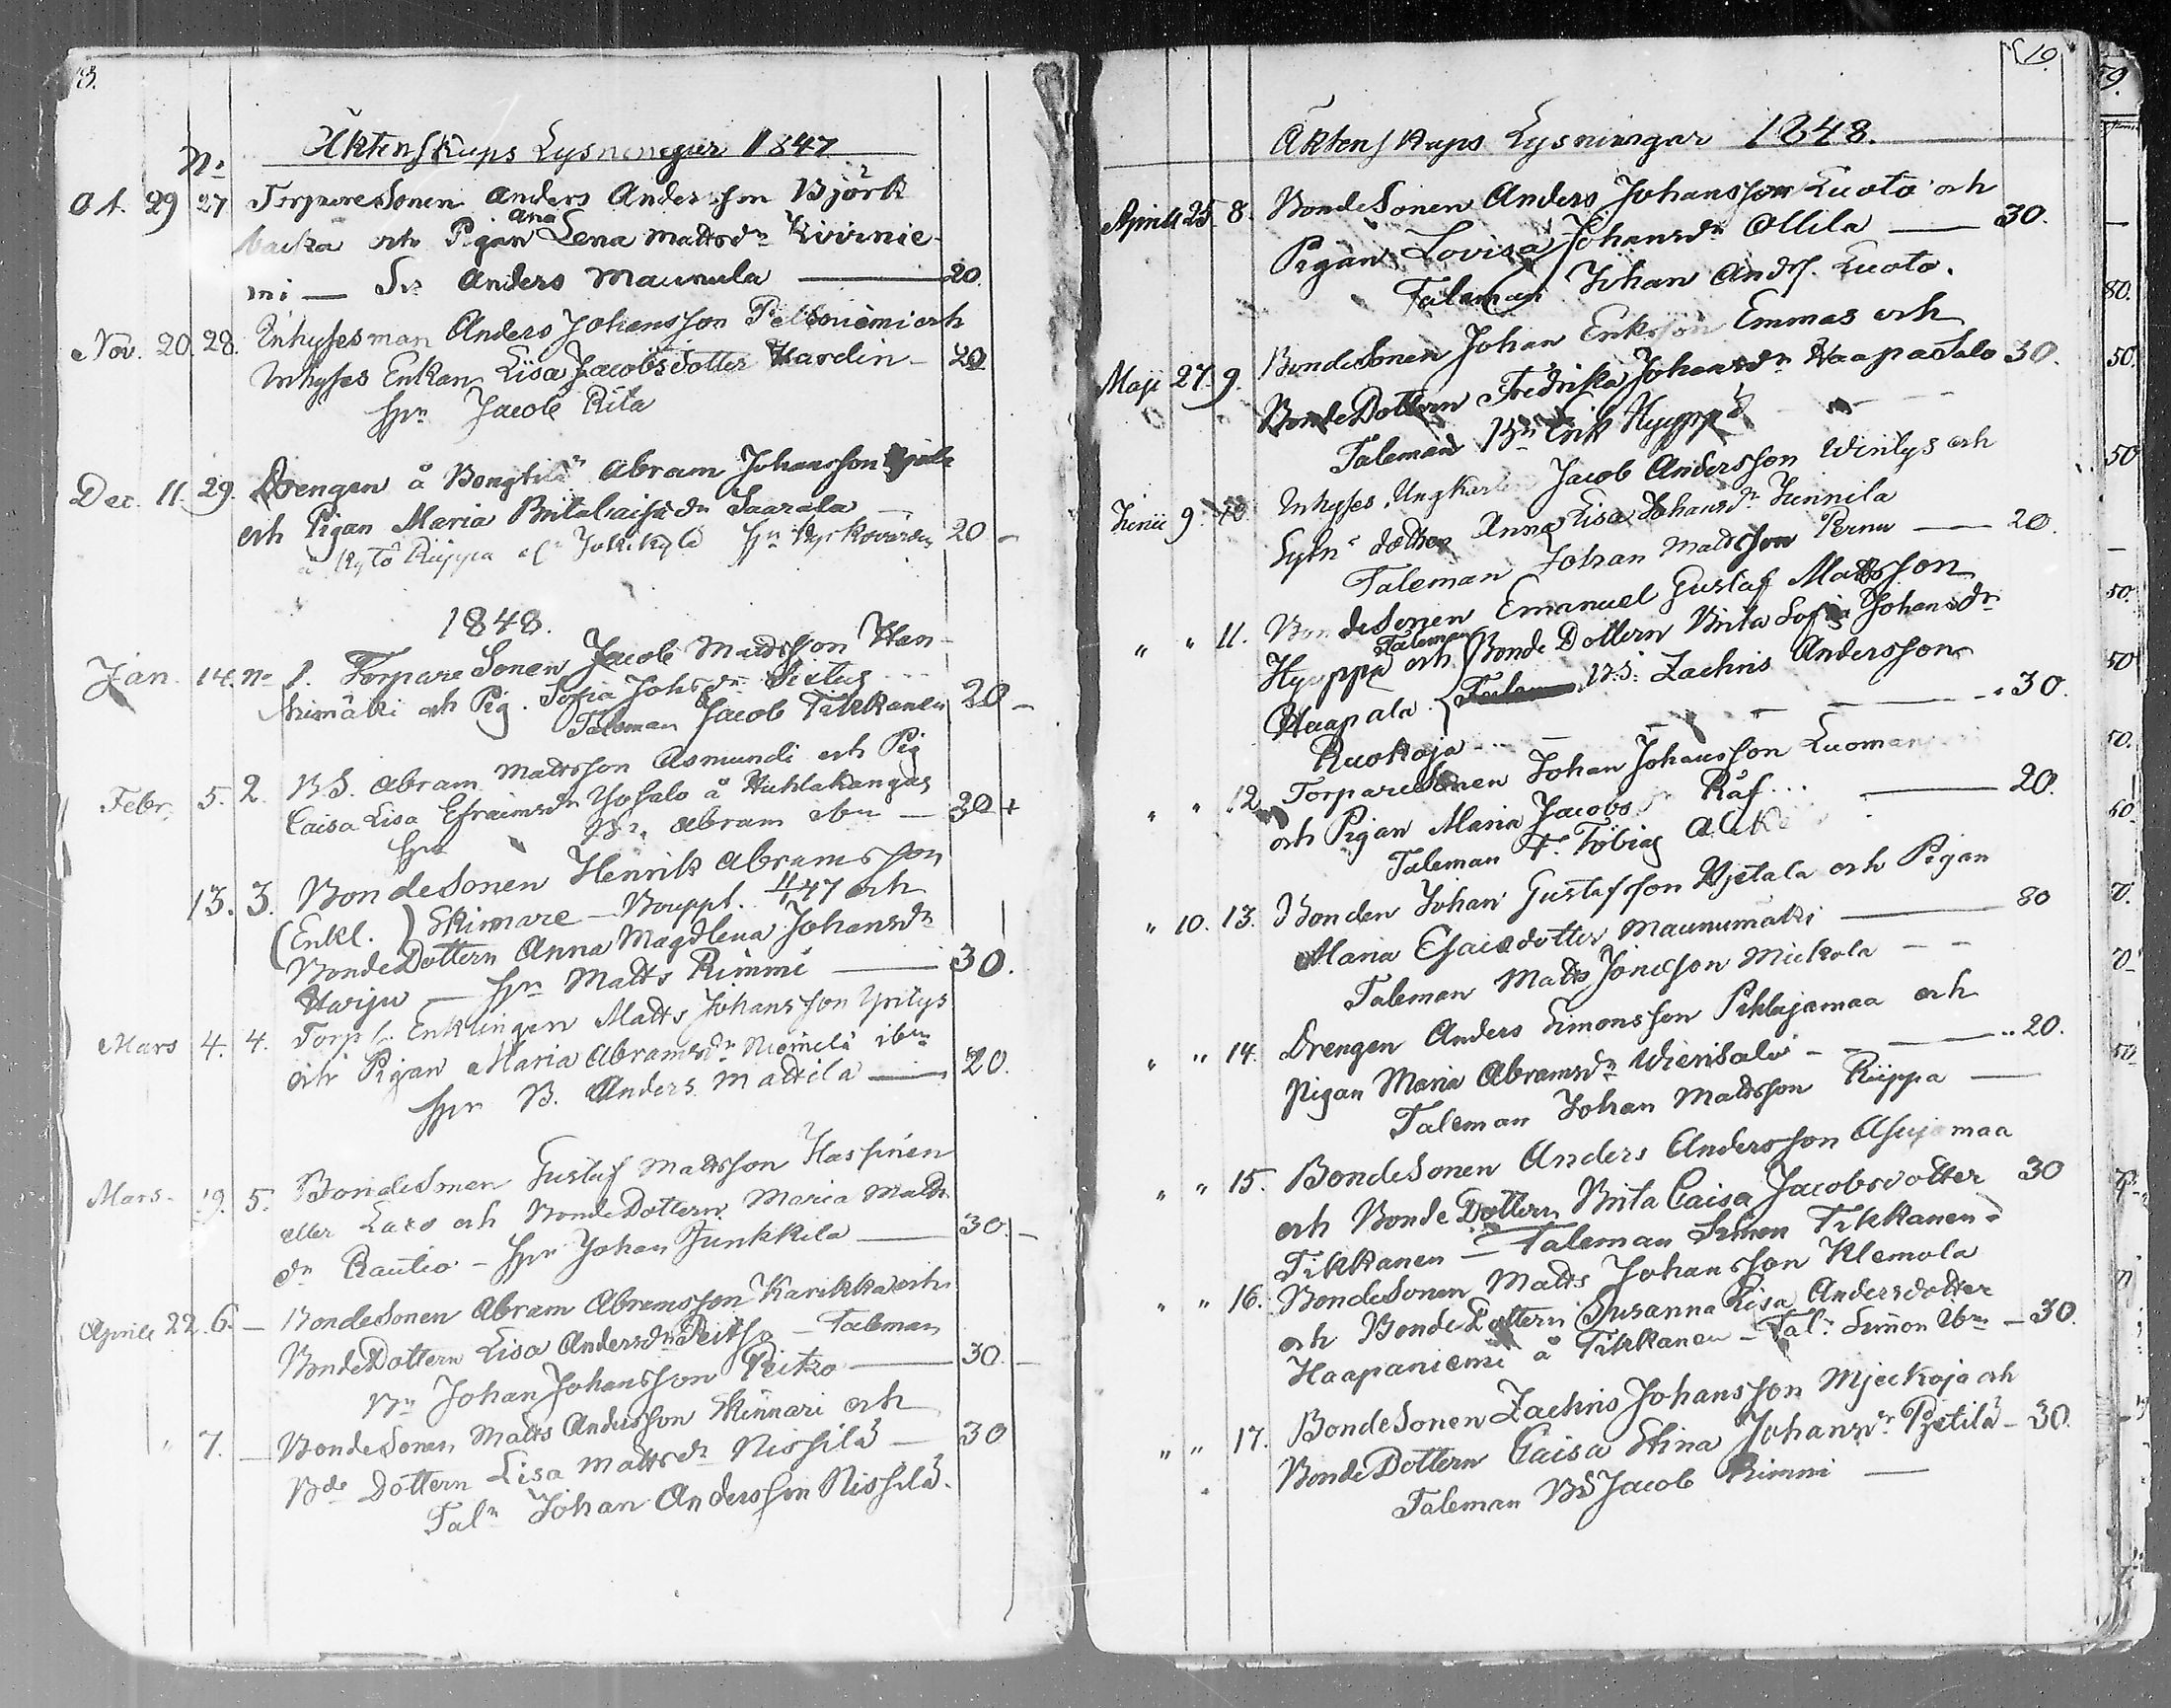 Äktenskaps Lysningar 1847
No
Oct. 29 27 Torparesonen Anders Andersson Björk
backa och Pigan Ana Lena Mattsdr Kivinie-
mi — Anders Maunula — 20
Nov. 20. 28. Inhysesman Anders Johansson Peltoniemi och
Inhyses Enkan Lisa Jacobsdotter Hardin — 20
Jacob Rita
Dec. 11. 29. Drengen å Bengtilä Abram Johansson
och Pigan Maria Brita Saarala
20
1848.
Jan. 14. No 1. Torpare Sonen Jacob Mattsson Han-
nimäki och Pig. Sofia Johsdr
Taleman Jacob Tikkanen 20 —
Febr. 5. 2. B.S. Abram Mattsson Asmundi och Pig
Caisa Lisa Efraimsdr Yosalo å Huhtakangas
Abram — 30 +
13. 3. BondeSonen Henrik Abramsson
(Enkl.) Skinnare — Bouppt. 47 och
BondeDottern Anna Magdlena Johansdr
Harju — Matts Rimmi — 30.
Mars 4. 4. Torp Enklingen Matts Johansson Yrilys
och Pigan Maria Abramsdr Niemelä
B. Anders Mattila — 20.
Mars. 19. 5. BondeSonen Gustaf Mattsson Hassinen
eller Laxo och BondeDottern Maria Matts
dr Rautio — Johan Junkkila — 30. —
Aprill 22. 6. — BondeSonen Abram Abramsson Karikka och
BondeDottern Lisa Andersdr Peitso — Taleman
Bn Johan Johansson Peitso — 30. —
" 7. — BondeSonen Matts Andersson Skinnari och
Bde Dottern Lisa Mattsdr Nissilä — 30
Taln Johan Andersson Nissilä.
19.
Äktenskaps Lysningar 1848.
Aprill 25. 8. BondeSonen Anders Johansson Luoto och
Pigan Lovisa Johansdr Ollila — 30.
Taleman Johan Anders. Luoto.
Maji 27. 9. BondeSonen Johan Eriksson Emmas och
BondeDottern Fredrika Johansdr Haapasalo 30.
Taleman Bn Erik Hyyppä
Junii 9. 10. Inhyses Ungkarlen Jacob Andersson Wirilys och
dotter Anna Lisa Johansdr Junnila
Taleman Johan Mattsson Pernu — 20.
" " 11. BondeSonen Emanuel Gustaf Mattsson
Hyyppä och Bonde Dottern Brita Sofia Johansdr
Haapala Taleman B.S. Zachris Andersson
Ruokoja — 30.
" " 12 TorpareSonen Johan Johansson Luoman
och Pigan Maria Jacobs Räf — 20.
Taleman T. Tobias
" 10. 13. Bonden Johan Gustafsson Wjetala och Pigan
Maria Esaisdotter Maunumäki — 80
Taleman Matts Jonesson Mickola — —
" " 14. Drengen Anders Simonsson Pihlajamaa och
Pigan Maria Abramsdr Wierisalo — 20.
Taleman Johan Mattsson Riippa —
" " 15. BondeSonen Anders Andersson Asujamaa
och Bonde Dottern Brita Caisa Jacobsdotter 30
Tikkanen — Taleman Simon Tikkanen
" " 16. BondeSonen Matts Johansson Klemola
och Bonde Dottern Susanna Lisa Andersdotter
Haapaniemi å Tikkanen — Taln Simon Ibm — 30.
" " 17. BondeSonen Zachris Johansson Mjeckoja och
BondeDottern Caisa Stina Johansdr Pjetilä — 30.
Taleman Bd Jacob Rimmi —